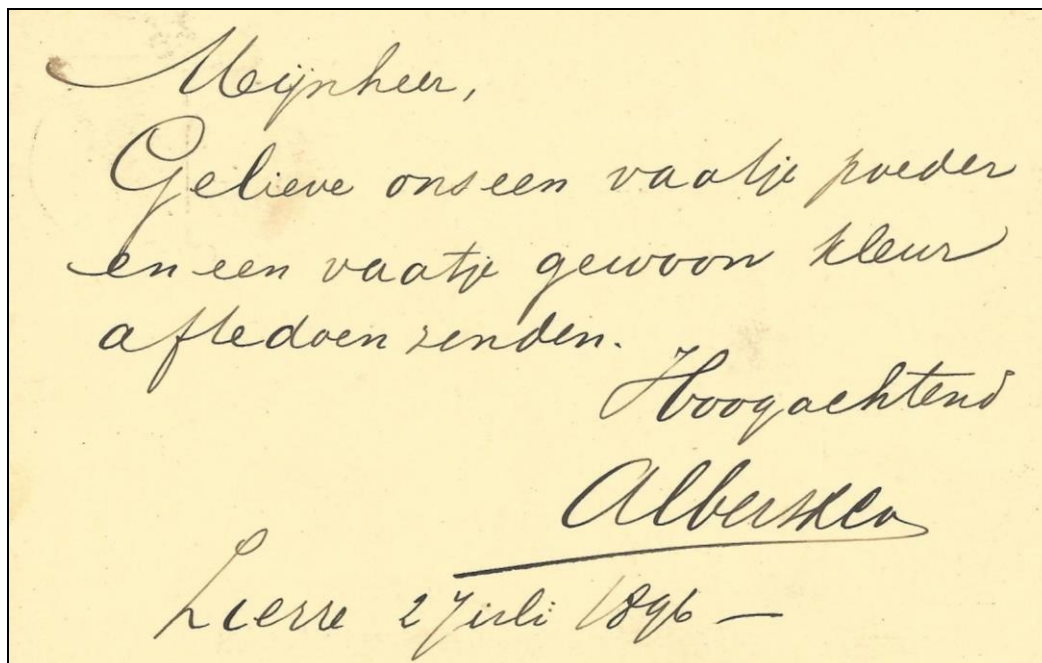 Mijnheer,
Gelieve ons een vaatje poeder
en een vaatje gewoon kleur
af te doen zenden.
Hoogachtend
Lierre 2 Juli 1896 —